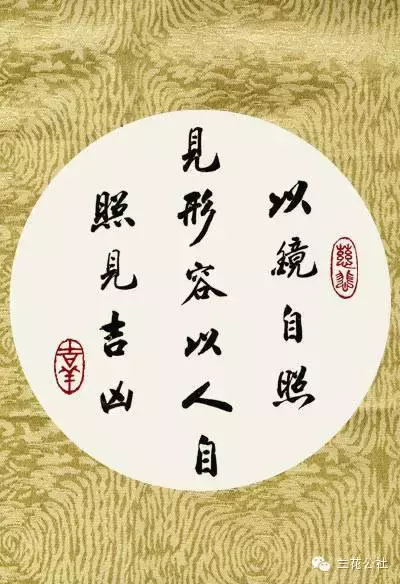 以鏡自照
見形容以人自
照見吉凶
慈悲
三花公社